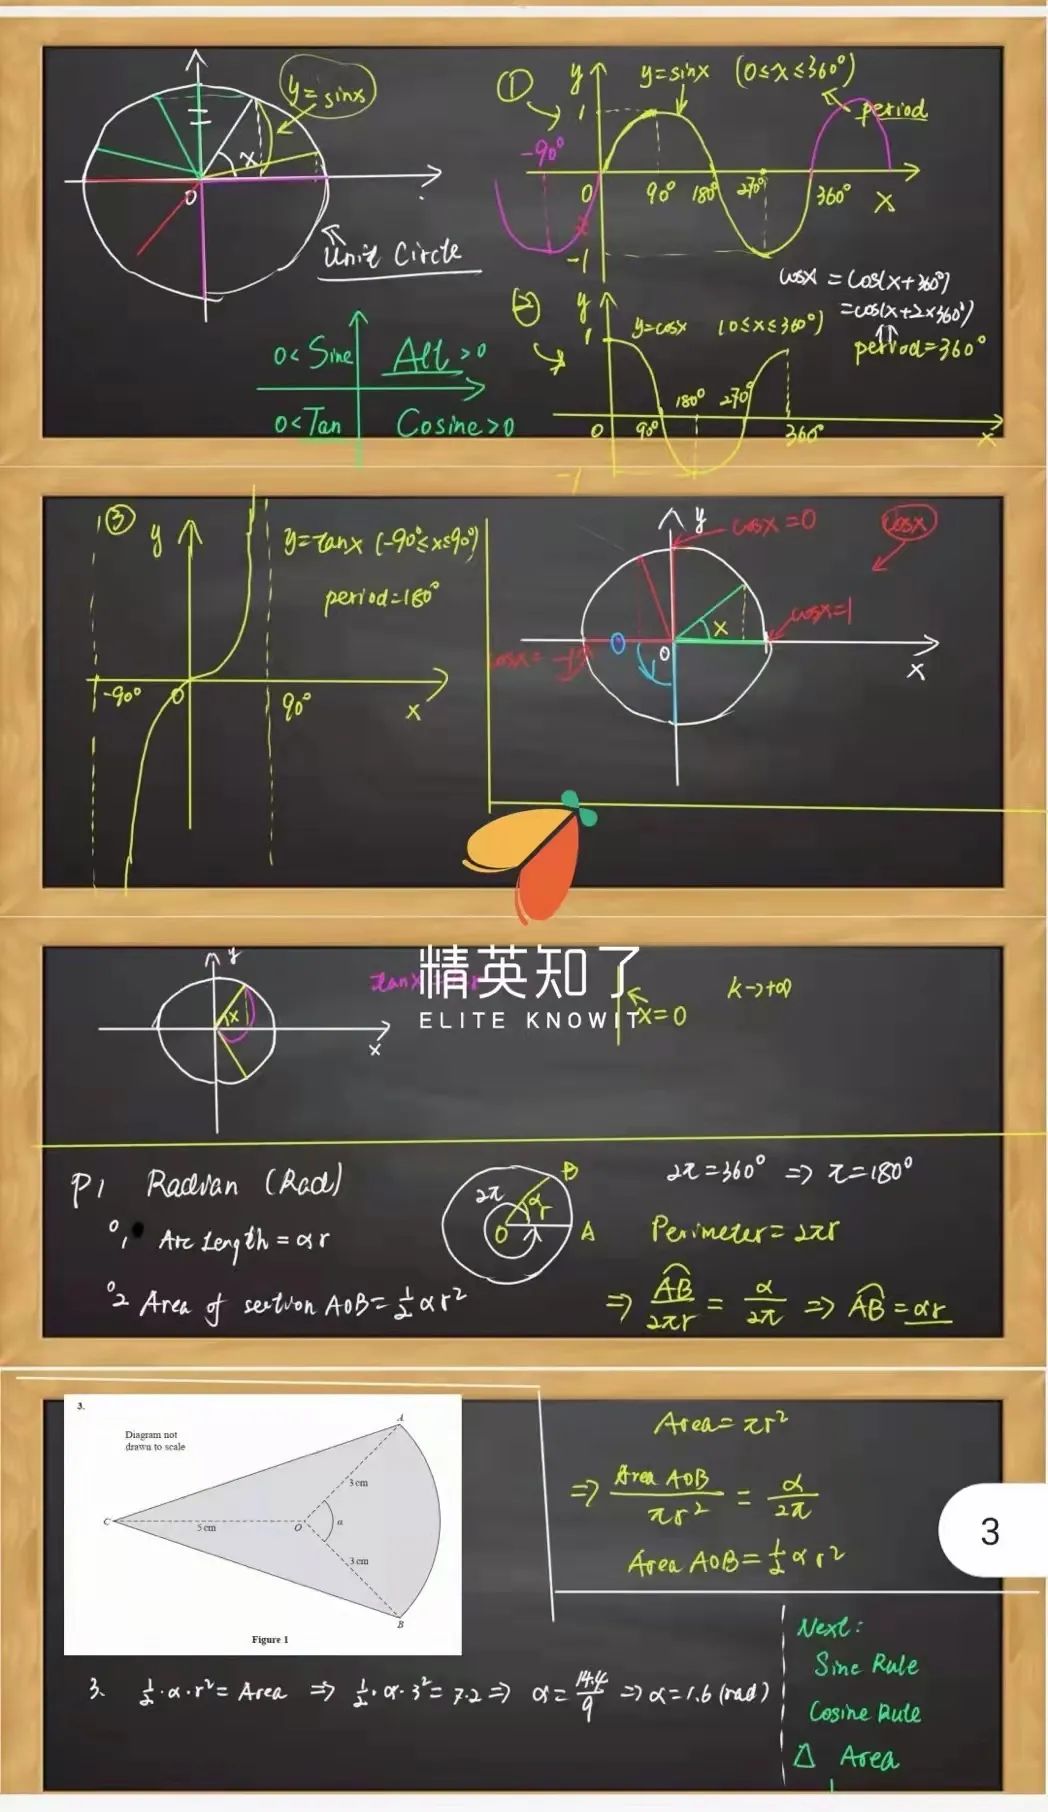 y=sinx
x
0
Unit Circle
0< Sine
All >0
0<Tan
Cosine>0
①
y
y=sinx (0≤x≤360°)
period
1
-90°
0
90°
180°
270°
360°
x
-1
cosx = cos(x+360°)
=cos(x+2×360°)
period=360°
②
y
1
y=cosx (0≤x≤360°)
0
90°
180°
270°
360°
x
-1
③
y
y=tanx (-90°≤x≤90°)
period=180°
-90°
0
90°
x
y
cosx=0
cosx
cosx=1
x
0
0
cosx= -1
x
精英知了
ELITE KNOWIT
y
x
x
tanx
x=0
k→+∞
P1 Radian (Rad)
°1 Arc Length = αr
°2 Area of section AOB = ½αr²
2π
B
α
r
O
A
2π=360° ⇒ π=180°
Perimeter=2πr
⇒ AB/2πr = α/2π ⇒ AB = αr
3.
Diagram not
drawn to scale
A
3 cm
C
5 cm
O
α
3 cm
B
Figure 1
Area=πr²
⇒ Area AOB/πr² = α/2π
Area AOB=½αr²
3
3. ½·α·r²= Area ⇒ ½·α·3²=7.2 ⇒ α=14.4/9 ⇒ α=1.6 (rad)
Next:
Sine Rule
Cosine Rule
Δ Area